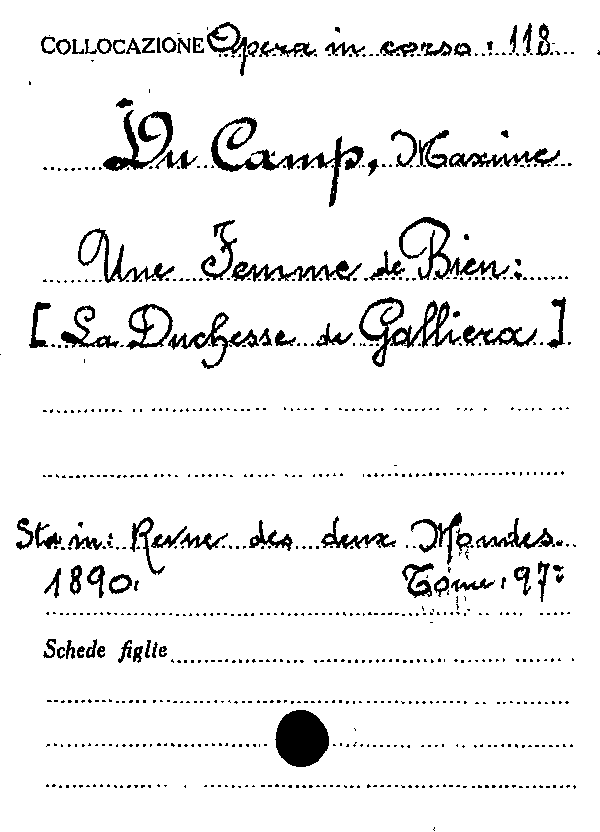 COLLOCAZIONE Opera in corso. 118
Du Camp, Maxime
Une Femme de Bien:
[La Duchesse de Galliera]
Sta in: Revue des deux Mondes.
1890. Tome. 97:
Schede figlie